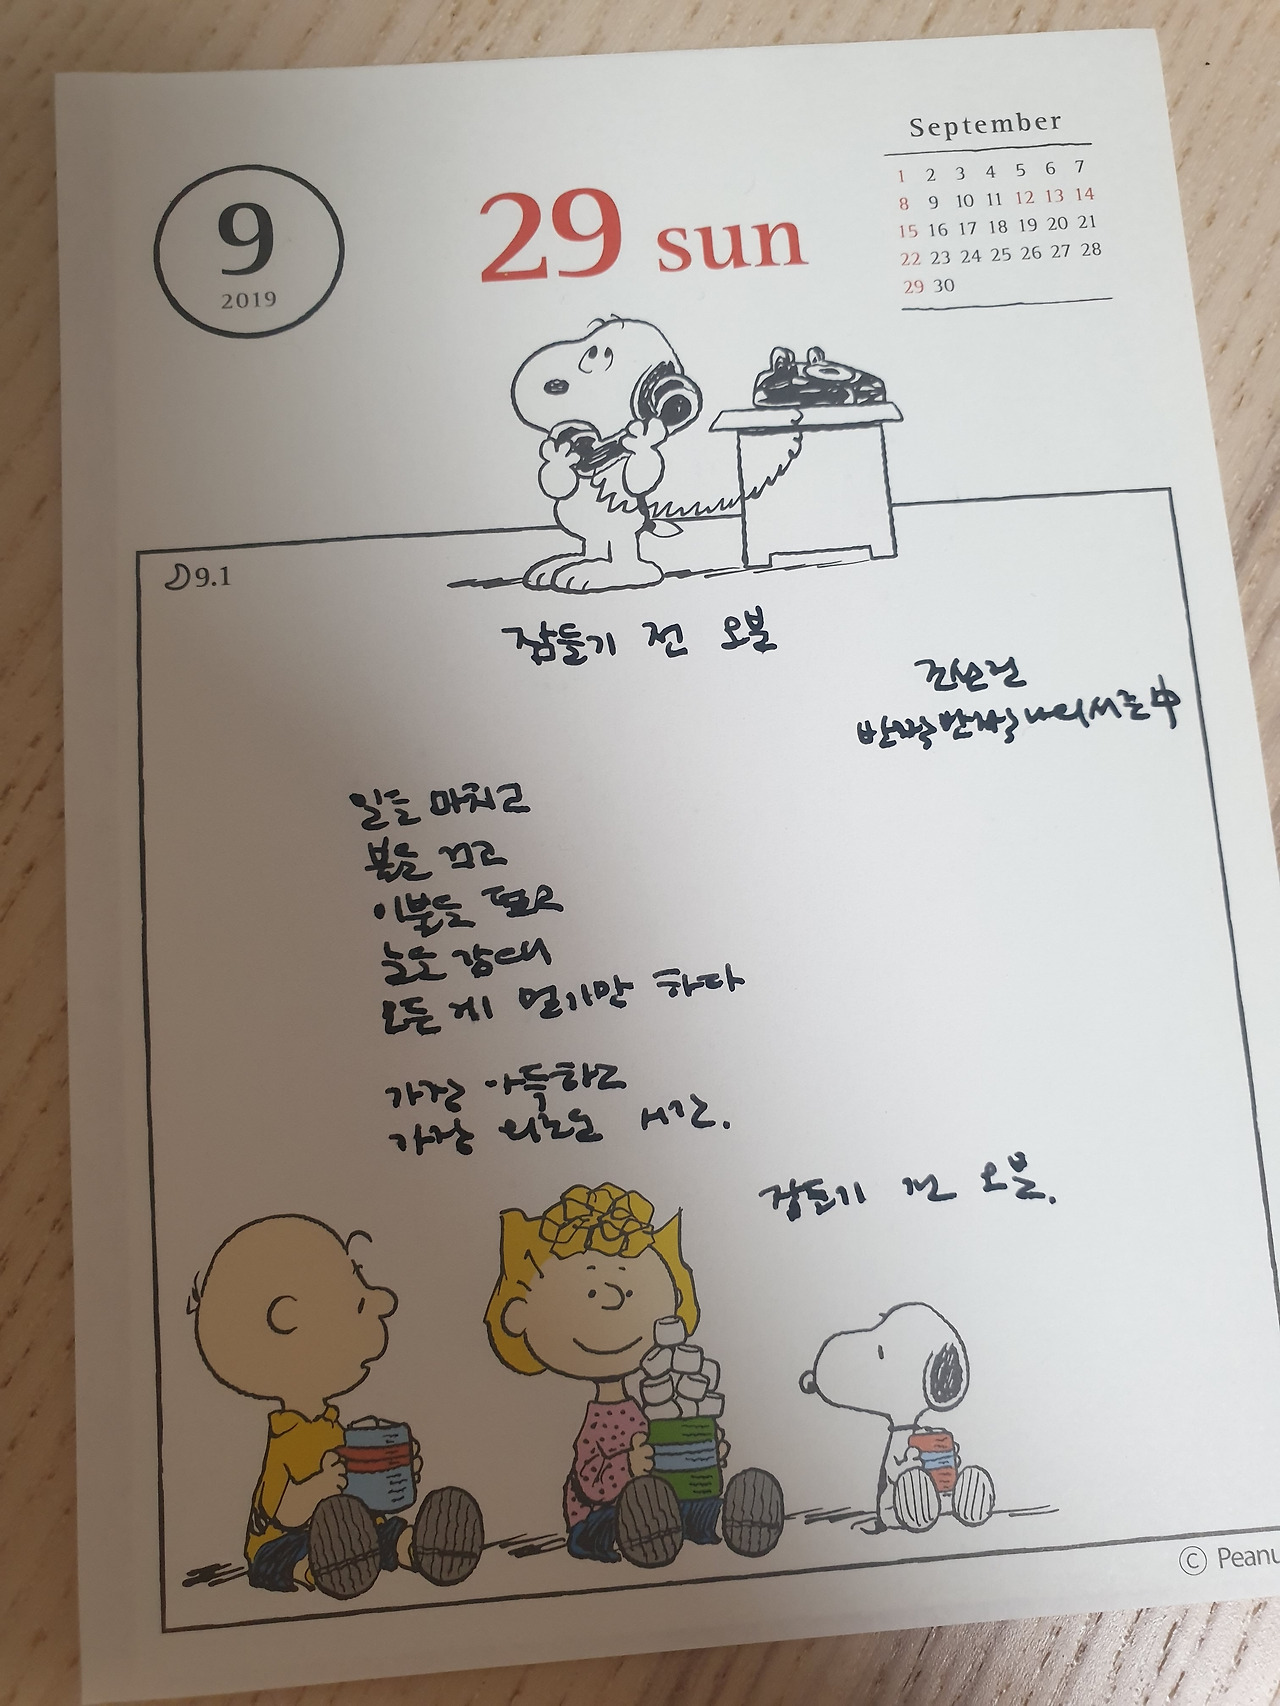 9
2019
29 sun
September
1 2 3 4 5 6 7
8 9 10 11 12 13 14
15 16 17 18 19 20 21
22 23 24 25 26 27 28
29 30
9.1
잠들기 전 오분
반짝반짝 나의서른中
일을 마치고
불을 끄고
이불을 펴고
눈을 감으면
모든 게 멀기만 하다
가장 아득하고
가장 외로운 시간.
잠들기 전 오분.
© Peanu